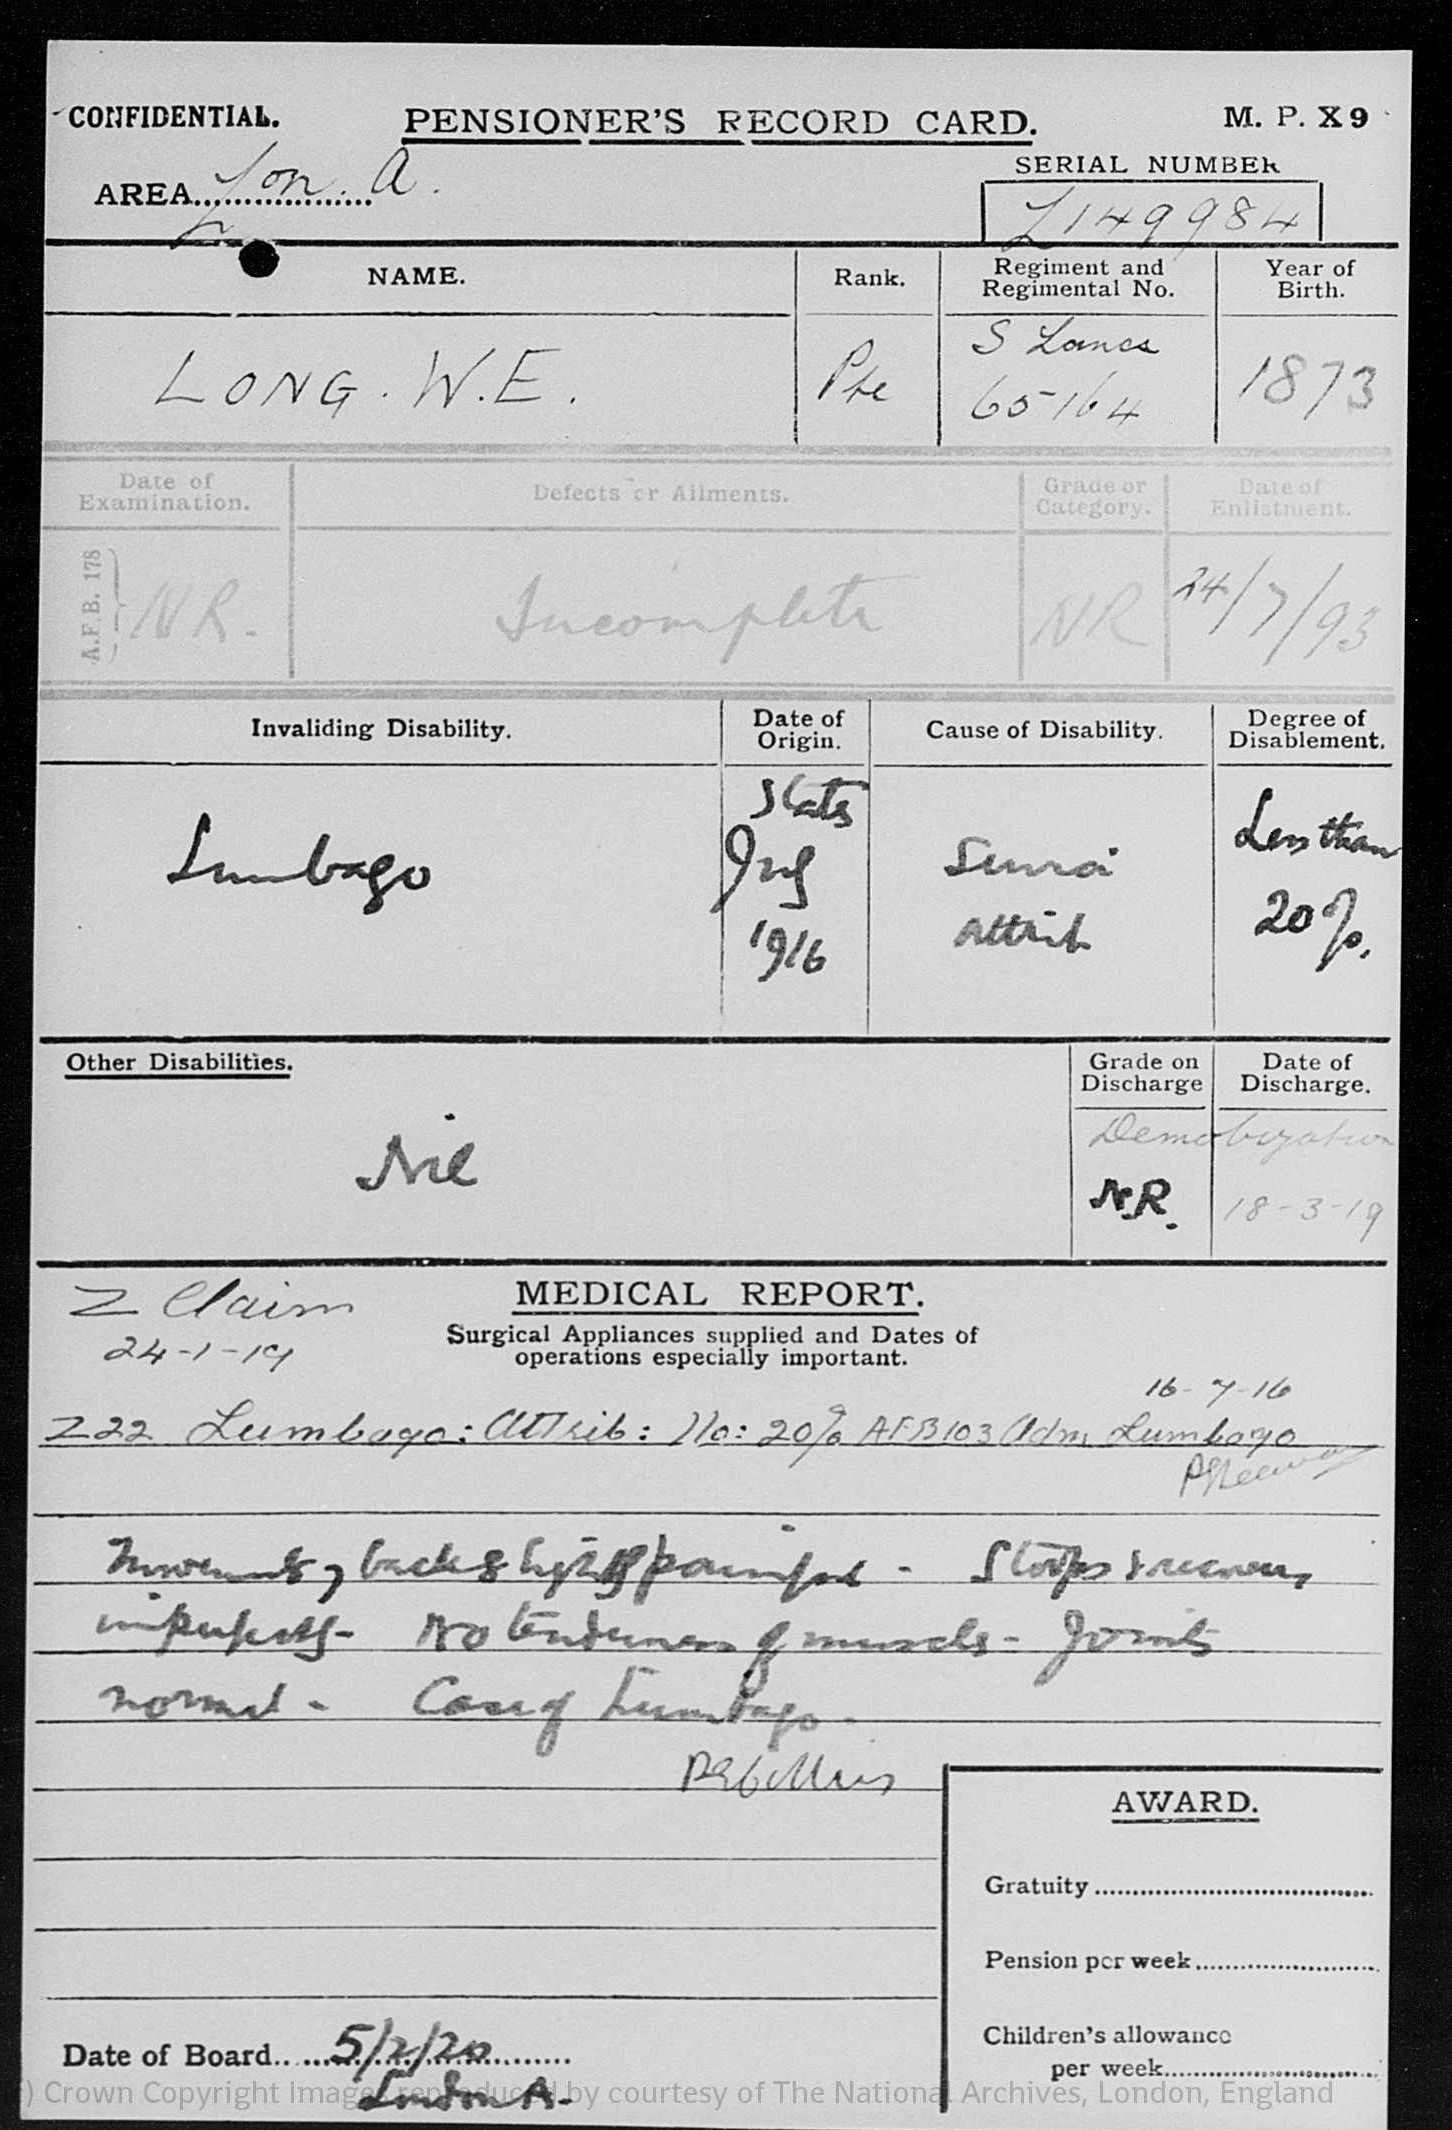 CONFIDENTIAL.
PENSIONER'S RECORD CARD.
M. P. X 9
AREA Lon. A.
SERIAL NUMBER
L149984
NAME.
Rank.
Regiment and
Regimental No.
Year of
Birth.
LONG. W.E.
Pte
S Lancs
65164
1873
Date of
Examination.
Defects or Ailments.
Grade or
Category.
Date of
Enlistment.
A.F.B. 178
NR.
Incomplete
NR
24/7/93
Invaliding Disability.
Date of
Origin.
Cause of Disability.
Degree of
Disablement.
Lumbago
States
1916
Service
attrib
Less than
20%.
Other Disabilities.
Grade on
Discharge
Date of
Discharge.
Nil
N.R.
18-3-19
Z Claim
24-1-19
MEDICAL REPORT.
Surgical Appliances supplied and Dates of
operations especially important.
16-7-16
Z22 Lumbago: Attrib: 20% AFB103 Adm Lumbago
Movements of back & painful - Stoops & recovers
imperfectly - No tenderness of muscles - Joints
normal - Case of Lumbago.
AWARD.
Gratuity
Pension per week
Children's allowance
per week
Date of Board 5/2/20
London A.
) Crown Copyright Images reproduced by courtesy of The National Archives, London, England